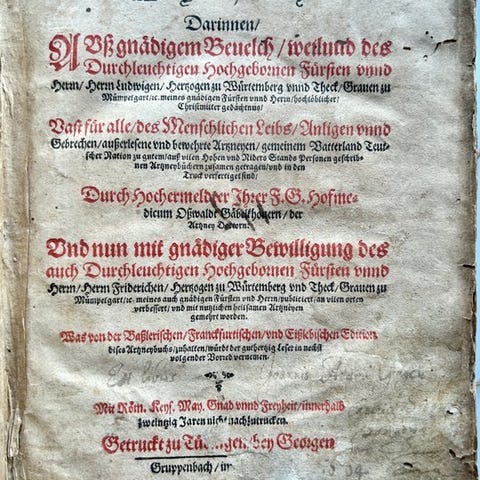 Darinnen/
Auß gnädigem Beuelch/ weilund des
Durchleuchtigen Hochgebornen Fürsten vnnd
Herrn/ Herrn Ludwigen/ Hertzogen zu Würtemberg vnnd Theck/ Grauen zu
Mümpelgart/ꝛc. meines gnädigen Fürsten vnnd Herrn/ hochlöblicher/
Christmilter gedächtnus/
Vast für alle/ des Menschlichen Leibs/ Anligen vnnd
Gebrechen/ außerlesene vnd bewehrte Artzneyen/ gemeinem Vatterland Teut-
scher Nation zu gutem/ auß vilen Hohen vnd Niders Stands Personen geschrib-
nen Artzneybüchern zusamen getragen/ vnd in den
Truck verfertiget sind/
Durch Hochermeldter Ihrer F. G. Hofme-
dicum Oßwaldt Gäbelkhouern/ der
Artzney Doctorn.
Vnd nun mit gnädiger Bewilligung des
auch Durchleuchtigen Hochgebornen Fürsten vnnd
Herrn/ Herrn Friderichen/ Hertzogen zu Würtemberg vnd Theck/ Grauen zu
Mümpelgart/ꝛc. meines auch gnädigen Fürsten vnd Herrn/ publiciert/ an vilen orten
verbessert/ vnd mit nutzlichen heilsamen Artzneyen
gemehrt worden.
Was von der Baßlerischen/ Franckfurtischen/ vnd Eißlebischen Edition
dises Artzneybuchs/ zuhalten/ würdt der guthertzig Leser in nechst
volgender Vorred vernemen.
Mit Röm. Keys. May. Gnad vnnd Freyheit/ innerhalb
zweintzig Jaren nicht nachzutrucken.
Getruckt zu Tübingen/ bey Georgen
Gruppenbach/ im